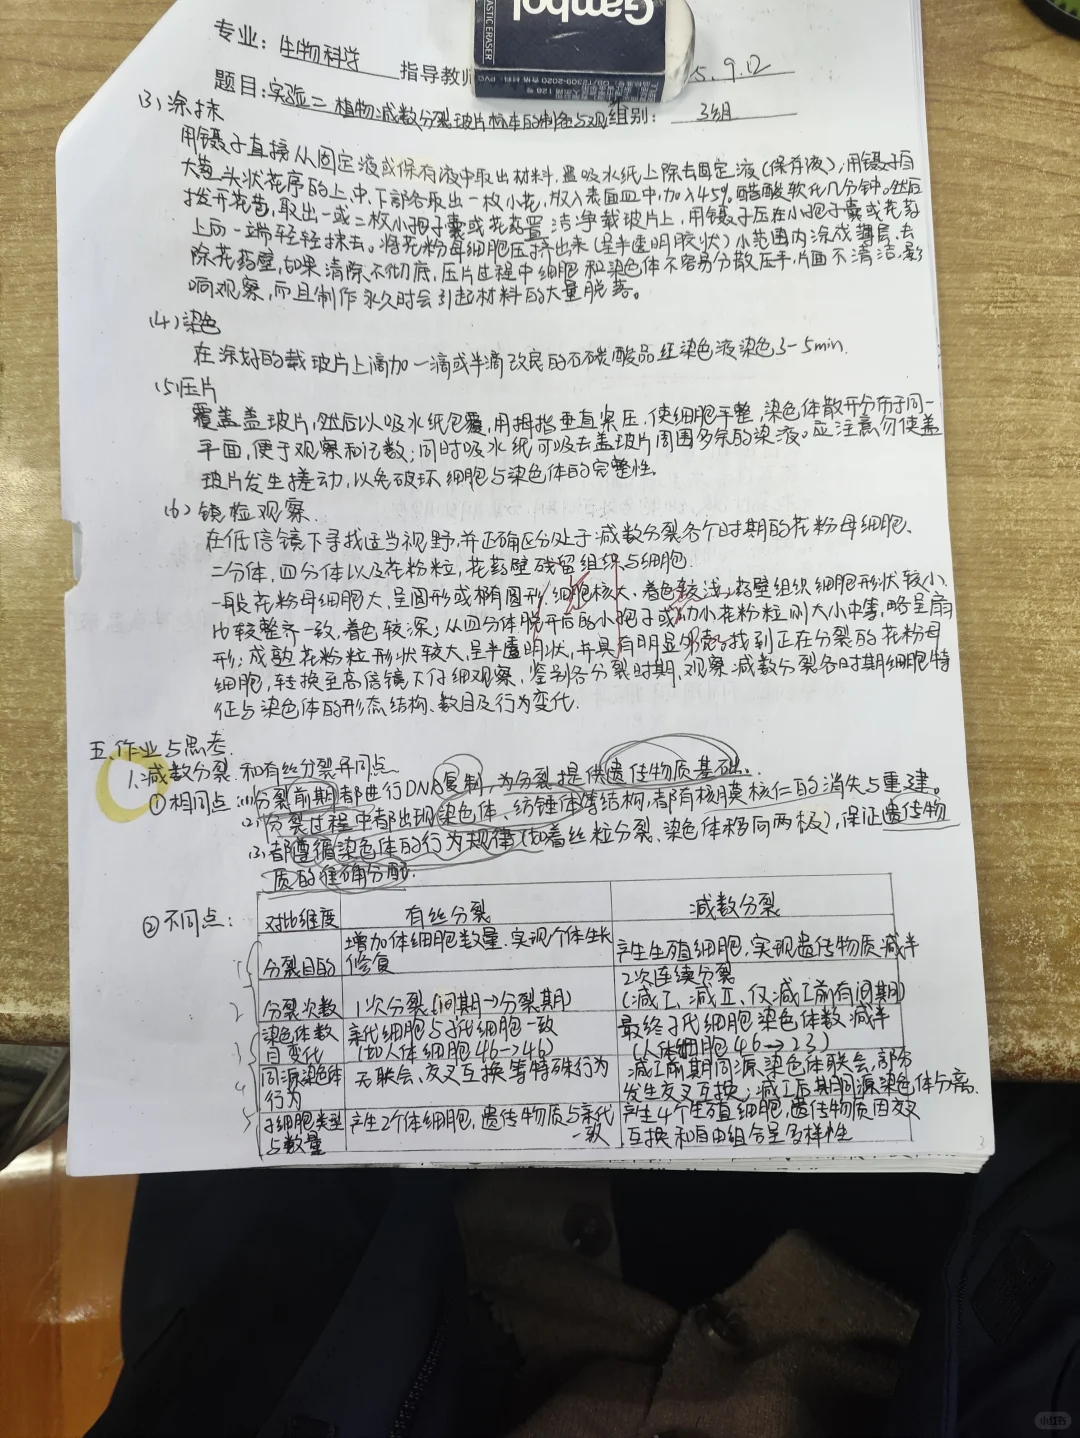 Gambol
PLASTIC ERASER
专业：生物科学 指导教师 5.9.02
题目：实验二 植物减数分裂玻片标本的制备与观 组别： 3组
(3)涂抹
用镊子直接从固定液或保存液中取出材料，置吸水纸上除去固定液(保存液)，用镊子自
大葱头状花序的上、中、下部各取出一枚小花，放入表面皿中，加入45%醋酸软化几分钟。然后
拨开花苞，取出一或二枚小孢子囊或花药置洁净载玻片上，用镊子压在小孢子囊或花药
上向一端轻轻抹去。将花粉母细胞压挤出来(呈半透明胶状)小范围内涂成薄层，去
除花药壁，如果清除不彻底，压片过程中细胞和染色体不容易分散压平，片面不清洁，影
响观察，而且制作永久时会引起材料的大量脱落。
(4)染色
在涂好的载玻片上滴加一滴或半滴改良的石碳酸品红染色液染色3-5min.
(5)压片
覆盖盖玻片，然后以吸水纸包覆，用拇指垂直紧压，使细胞平整，染色体散开分布于同一
平面，便于观察和记数；同时吸水纸可吸去盖玻片周围多余的染液。应注意勿使盖
玻片发生搓动，以免破坏细胞与染色体的完整性。
(6)镜检观察.
在低倍镜下寻找适当视野，并正确区分处于减数分裂各个时期的花粉母细胞、
二分体，四分体以及花粉粒，花药壁残留组织与细胞.
一般花粉母细胞大，呈圆形或椭圆形，细胞核大、着色较浅；药壁组织细胞形状较小、
比较整齐一致，着色较深；从四分体脱开后的小孢子或幼小花粉粒则大小中等，略呈扇
形；成熟花粉粒形状较大，呈半透明状，并具有明显外壳。找到正在分裂的花粉母
细胞，转换至高倍镜下仔细观察，鉴别各分裂时期，观察减数分裂各时期细胞特
征与染色体的形态结构、数目及行为变化.
五.作业与思考.
1.减数分裂和有丝分裂异同点
①相同点：(1)分裂前期都进行DNA复制，为分裂提供遗传物质基础.
(2)分裂过程中都出现染色体、纺锤体等结构，都有核膜核仁的消失与重建。
(3)都遵循染色体的行为规律(如着丝粒分裂、染色体移向两极)，保证遗传物
质的准确分配.
②不同点： 对比维度 有丝分裂 减数分裂
分裂目的 增加体细胞数量，实现个体生长修复 产生生殖细胞，实现遗传物质减半
分裂次数 1次分裂(间期→分裂期) 2次连续分裂(减Ⅰ、减Ⅱ，仅减Ⅰ前有间期)
染色体数目变化 亲代细胞与子代细胞一致(如人体细胞46→46) 最终子代细胞染色体数减半(人体细胞46→23)
同源染色体行为 无联会、交叉互换等特殊行为 减Ⅰ前期同源染色体联会，部分发生交叉互换；减Ⅰ后期同源染色体分离.
子细胞类型与数量 产生2个体细胞，遗传物质与亲代一致 产生4个生殖细胞，遗传物质因交叉互换和自由组合呈多样性
3
小红书